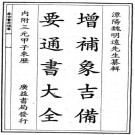 潭陽魏明遠先生纂輯
增補象吉備
要通書大全
內附三元甲子未歷
廣益書局發行